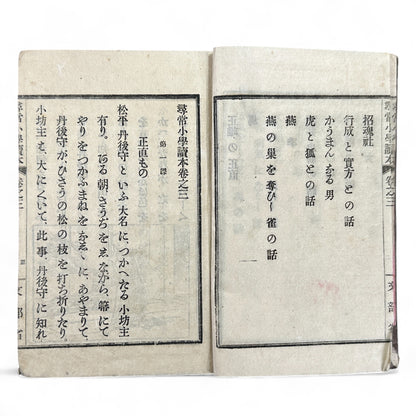 招魂社
行成と實方との話
かうまんなる男
虎と狐との話
燕
燕の巣を奪ひし雀の話
尋常小學讀本卷之三
第一課
正直もの
松平丹後守といふ大名に、つかへたる小坊主
有り。ある朝、さうぢをしながら、箒にて
やりをつかふまねをなしゝに、あやまりて、
丹後守が、ひさうの松の枝を打ち折りたり。
小坊主も、大に此事、丹後守に知れ
尋常小學讀本 卷之三 文部省